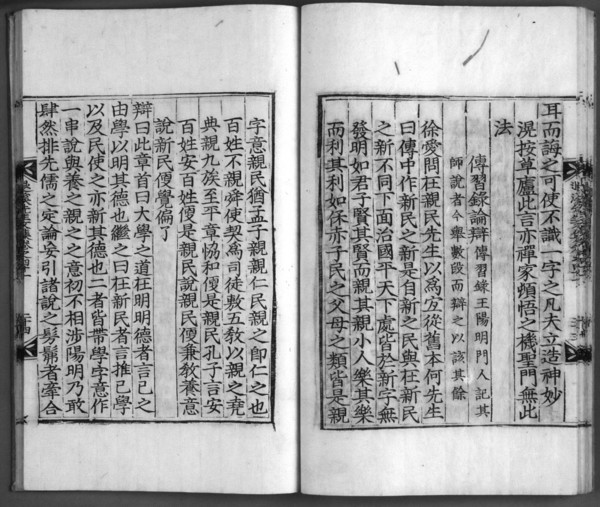 耳而誨之可使不識一字之凡夫立造神妙
滉按草廬此言亦禪家頓悟之機聖門無此
法
傳習錄論辯 傳習錄王陽明門人記其
師說者今舉數段而辯之以該其餘
徐愛問在親民先生以爲宜從舊本何先生
曰傳中作新民之新是自新之民與在新民
之新不同下面治國平天下處皆於新字無
發明如君子賢其賢而親其親小人樂其樂
而利其利如保赤子民之父母之類皆是親
字意親民猶孟子親親仁民親之卽仁之也
百姓不親舜使契爲司徒敷五敎以親之堯
典親九族至平章協和便是親民孔子言安
百姓安百姓便是親民說親民便兼敎養意
說新民便覺偏了
辯曰此章首曰大學之道在明明德者言己之
由學以明其德也繼之曰在新民者言推己學
以及民使之亦新其德也二者皆帶學字意作
一串說與養之親之之意初不相涉陽明乃敢
肆然排先儒之定論妄引諸說之髣髴者牽合